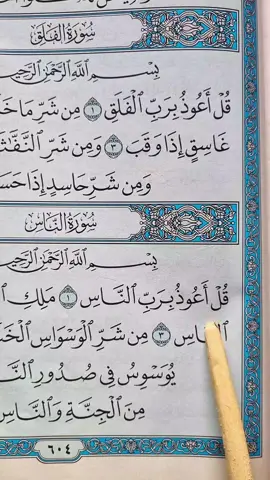 سُورَةُ الفَلَقِ
بِسْمِ ٱللَّهِ ٱلرَّحْمَٰنِ ٱلرَّحِيمِ
قُلْ أَعُوذُ بِرَبِّ ٱلْفَلَقِ ١ مِن شَرِّ مَا
غَاسِقٍ إِذَا وَقَبَ ٣ وَمِن شَرِّ
وَمِن شَرِّ حَاسِدٍ إِذَا
سُورَةُ النَّاسِ
بِسْمِ ٱللَّهِ ٱلرَّحْمَٰنِ ٱلرَّحِيمِ
قُلْ أَعُوذُ بِرَبِّ ٱلنَّاسِ ١ مَلِكِ
ٱلنَّاسِ ٣ مِن شَرِّ ٱلْوَسْوَاسِ
يُوَسْوِسُ فِى صُدُورِ
مِنَ ٱلْجِنَّةِ وَٱلنَّاسِ
٦٠٤